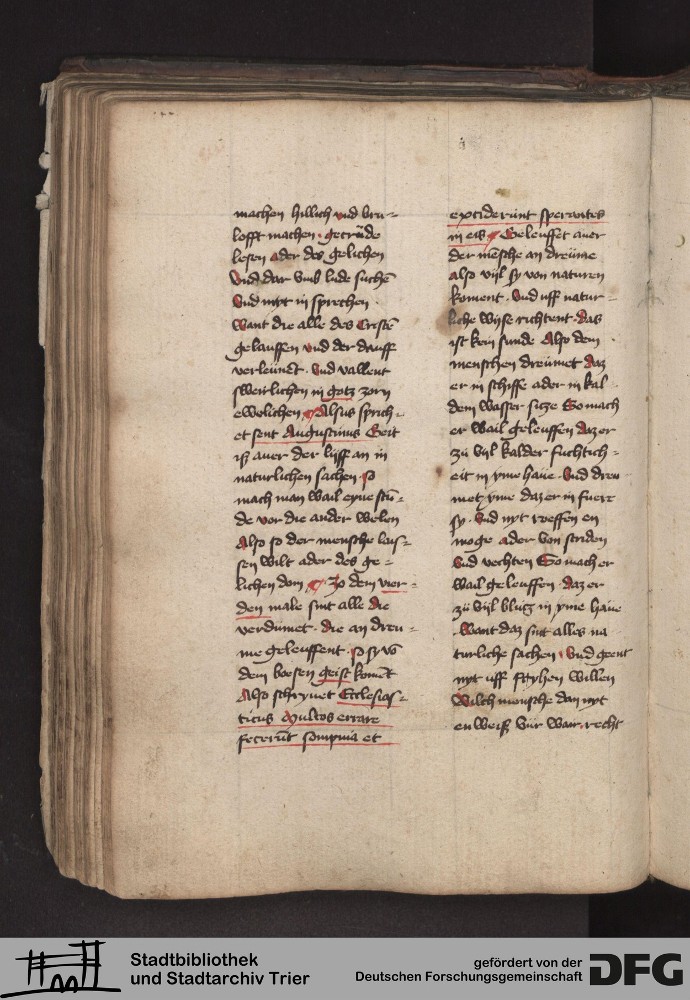 machen hillich vnd bru-
lofft machen · getrude
lesen ader des gelichen
Vnd dar vmb lude suchē
Vnd nyt in sprechen ·
Want die alle des Cristē
gelauffen vnd der dauff
verleundt · Vnd vallent
sweirlichen in gotz zorn
ewelichen Alsus sprich-
et sent Augustinus Geit
iß auer der lyff an in
naturlichen sachen · so
mach man wail eyne stū-
de vor die ander welen
Also so der mensche lais-
sen wilt ader des ge-
lichen doin · Zo dem vier-
den male sint alle die
verdumet · die an dreu-
me geleuffent · so sy vs
dem boesen geist komēt
Also schryuet Ecclesias-
ticus Multos errare
fecerūt sompnia et
exciderunt sperantes
in eis Geleuffet auer
der mēsche an dreume
also vijl sy von naturen
koment · Vnd uff natur-
liche wyse richtent · das
ist kein sunde Also dem
menschen dreumet daz
er in schiffe ader in kal
dem wasser sitze So mach
er wail geleuffen daz er
zu vijl kalder fuchtich-
eit in yme haue · Vnd dreu
met yme daz er in fuere
sy · Vnd nyt treffen en
moge ader von striden
Vnd vechten So mach er
wail geleuffen · daz er
zu vijl blutz in yme haue
· Want daz sint alles na
turliche sachen · Vnd geent
nyt uff fryhen willen
Wilch mensche dan nyt
en weiß vur wair · recht
Stadtbibliothek
und Stadtarchiv Trier
gefördert von der
Deutschen Forschungsgemeinschaft
DFG